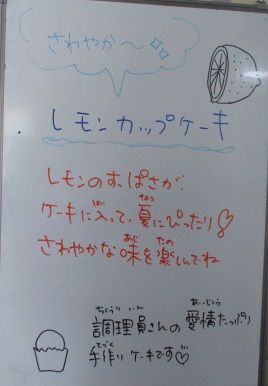 さわやか〜
レモンカップケーキ
レモンのすっぱさが、
ケーキに入って、夏にぴったり!
さわやかな味を楽しんでね
調理員さんの愛情たっぷり
手作りケーキです♡